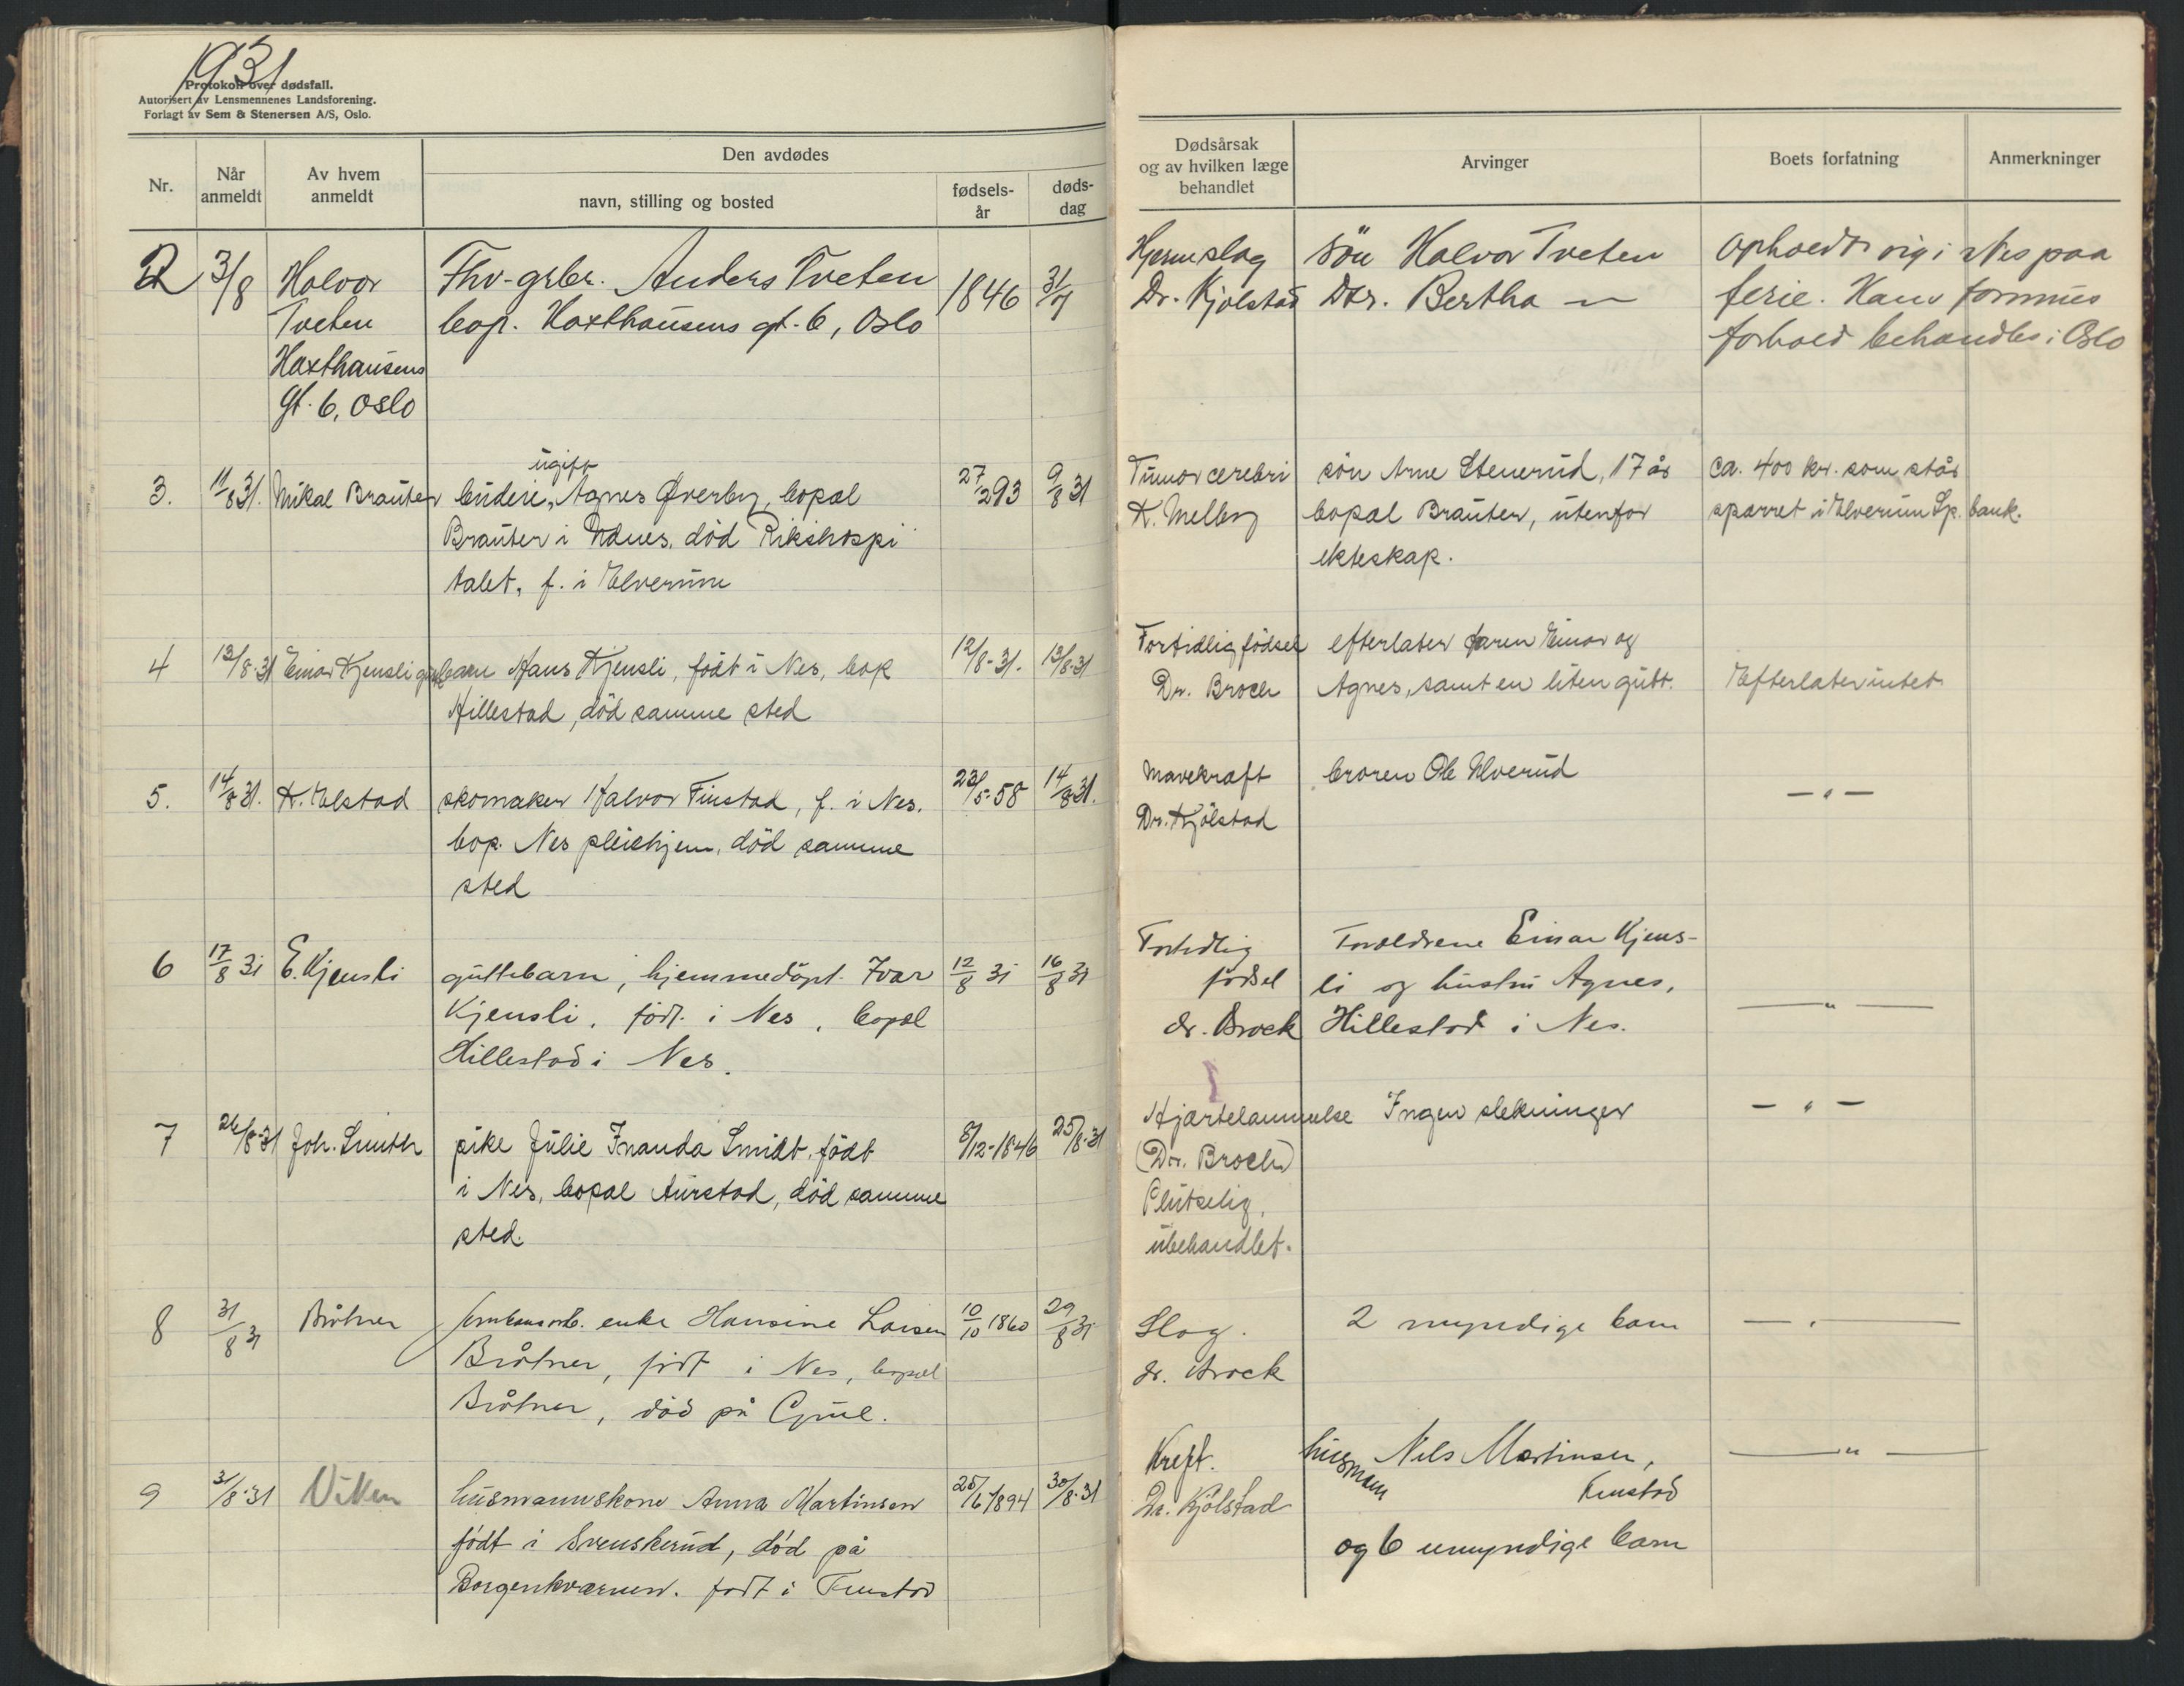 1931
Protokoll over dødsfall.
Autorisert av Lensmennenes Landsforening.
Forlagt av Sem & Stenersen A/S, Oslo.
Nr.
Når anmeldt
Av hvem anmeldt
Den avdødes
navn, stilling og bosted
fødsels-år
døds-dag
Dødsårsak og av hvilken læge behandlet
Arvinger
Boets forfatning
Anmerkninger
2 3/8 Halvor Fhv. grbr. Anders Tveten 1846 31/7
Tveten bop. Haxthausens gt. 6, Oslo
Haxthausens
Gt. 6, Oslo
Hjerneslag sön Halvor Tveten opholdt sig i Nes paa
Dr. Kjølstad Dtr. Bertha — ferie. Hans formues
forhold behandles i Oslo
3. 11/8 31. Mikal Brauter budeie, ugift Agnes Øverby, bopæl 27/2 93 9/8 31
Brauter i Udnes, död Rikshospi
talet, f. i Elverum
Tumor cerebri sön Arne Stenerud, 17 år ca. 400 kr. som står
K. Melby bopæl Brauter, utenfor sparret i Elverum Sp. bank.
ekteskap.
4 13/8-31 Einar Kjensli barn Hans Kjensli, født i Nes, bop 12/8-31. 13/8-31
Hillestad, död samme sted
Fortidlig fødsel efterlater faren Einar og
Dr. Broch Agnes, samt en liten gutt. Efterlater intet
5. 14/8 31. K. Elstad skomaker Halvor Finstad, f. i Nes. 23/5-58 14/8 31.
bop. Nes pleiehjem, död samme
sted
Mavekræft broren Ole Ulverud — " —
Dr. Kjölstad
6 17/8 31 E. Kjensli guttebarn, hjemmedöpt Ivar 12/8 31 16/8 31
Kjensli, født i Nes, bopæl
Hillestad i Nes.
Fortidlig Foreldrene Einar Kjens-
fødsel li og hustru Agnes,
dr. Brock Hillestad i Nes. — " —
7 26/8-31 Joh. Smith pike Julie Inanda Smidt, født 8/12-1846 25/8-31
i Nes, bopæl Aurstad, död samme
sted.
Hjertelammelse Ingen slektninger — " —
(Dr. Broch)
Plutselig,
ubehandlet.
8 31/8 31 Bråtner enke Hansine Larsen 10/10 1860 29/8 31
Bråtner, født i Nes, bopæl
Bråtner, död på
Slag. 2 myndige barn — " —
dr. Brock
9 31/8-31 Viken husmannskone Anna Martinsen 25/6-1894 30/8-31
født i Svenskerud, död på
Borgenkværnen. født i Funstad
Kreft. husmann Nils Martinsen, — " —
Dr. Kjölstad Funstad
og 6 umyndige barn